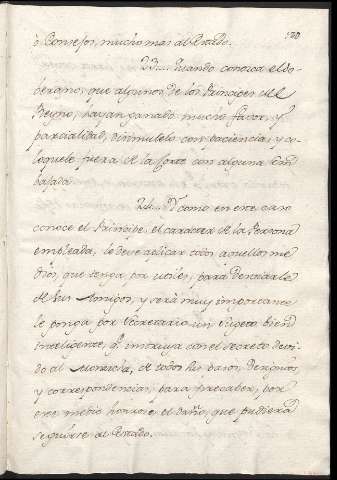 120
ô Consejos, mucho mas al Estado.
23.... Quando conosca el So-
berano, que algunos de los Principes del
Reyno, hayan ganado mucho favor, y
parcialidad, disimulelo con paciencia, y co-
loquele fuera de la Corte con alguna Em
bajada.
24.... Y como en este caso
conoce el Principe, el carácter de la Persona
empleada, le debe aplicar todos aquellos me
dios, que tenga por utiles, para
de sus Amigos, y será muy importante
le ponga por Secretario un Sugeto bien
inteligente, q. instruya con el secreto devi-
do al Monarca, de todos sus pasos, Designios,
y correspondencias, para precaber, por
ese medio honrose el daño, que pudiera
seguirse al Estado.